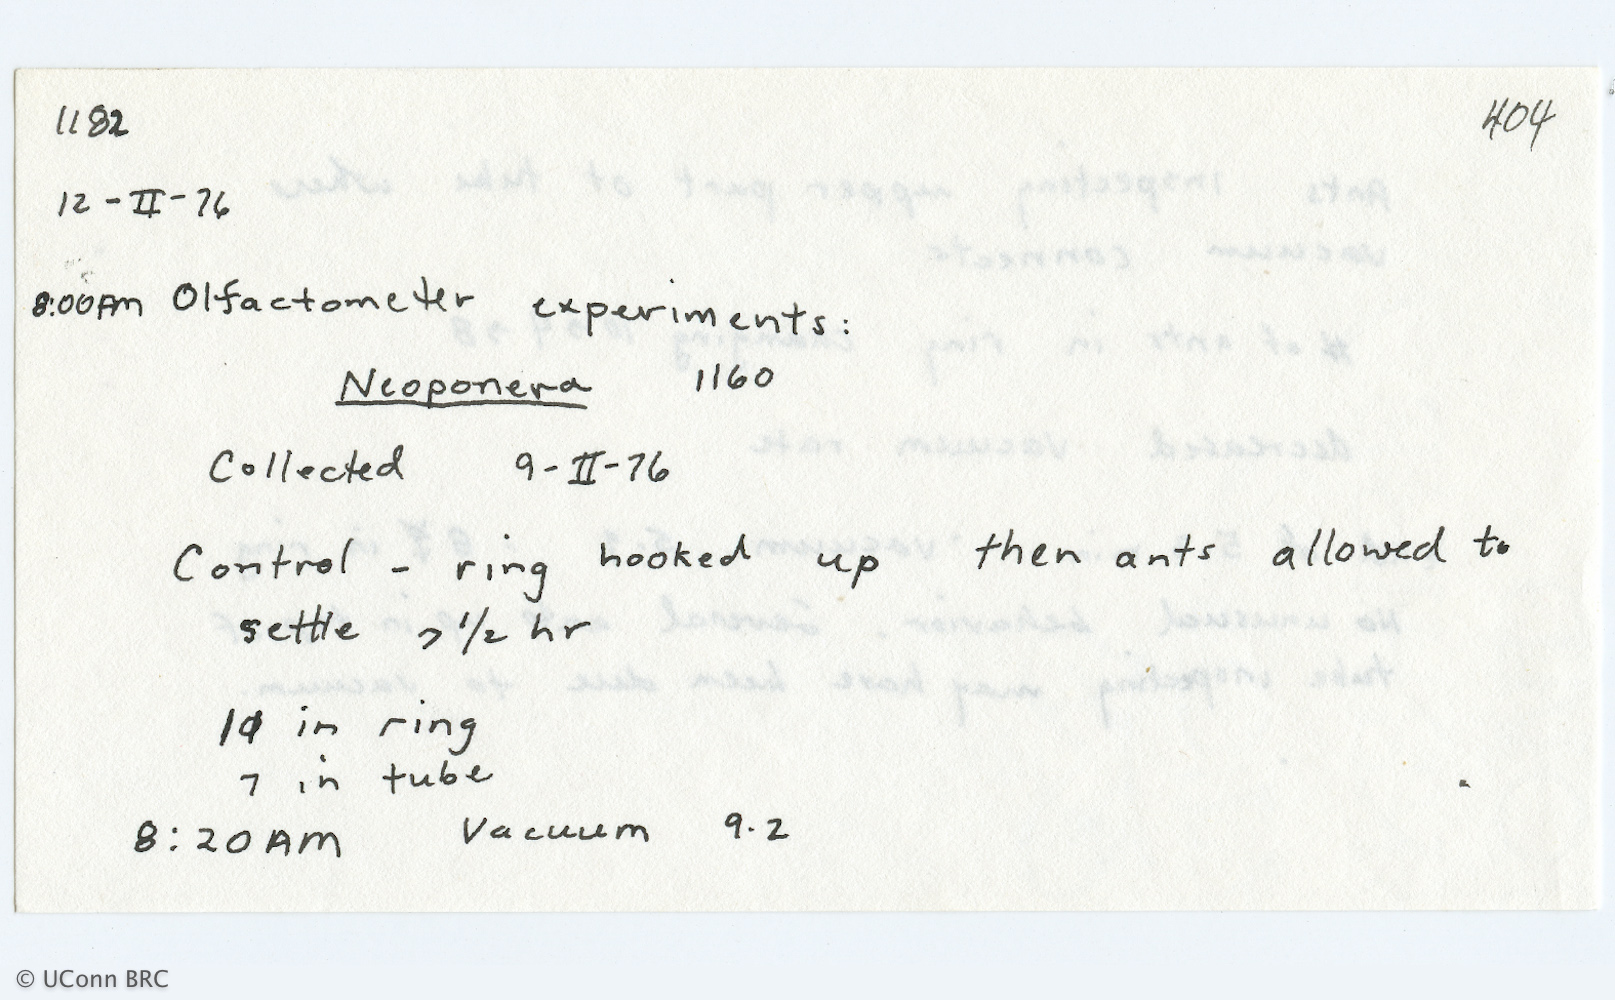 1182
404
12-II-76
8:00AM Olfactometer experiments:
Neoponera 1160
Collected 9-II-76
Control - ring hooked up then ants allowed to
settle > 1/2 hr
in ring
7 in tube
8:20AM Vacuum 9.2
© UConn BRC